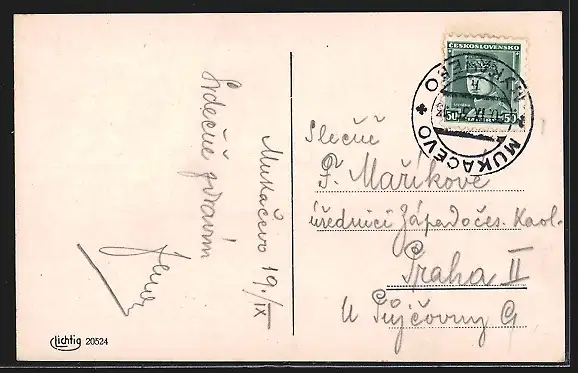 Mukačevo 19./IX
Srdečně zdravím
Jena
ČESKOSLOVENSKO
50
50
MUKAČEVO
Slečně
F. Maříkové
úřednici Západočes. Kaol.
Praha II
U Půjčovny 9
Lichtig 20524